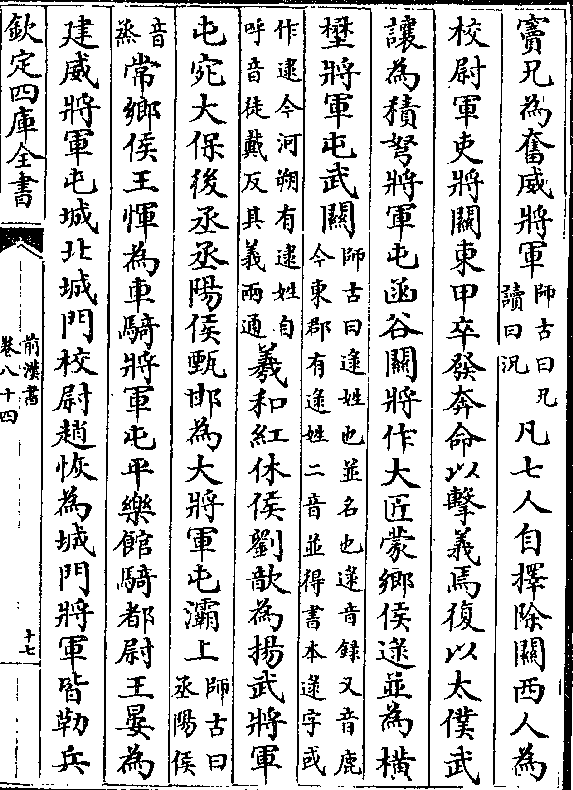 竇兄為奮威將軍師古曰兄讀曰況凡七人自擇除關西人為
校尉軍吏將關東甲卒發奔命以擊義焉復以太僕武
讓為積弩將軍屯函谷關將作大匠蒙鄉侯逯並為橫
壄將軍屯武關師古曰逯姓也並名也逯音録又音鹿今東郡有逯姓二音並得書本逯字或
作逮今河朔有逮姓自呼音徒戴反其義兩通羲和紅休侯劉歆為揚武將軍
屯宛大保後丞丞陽侯甄邯為大將軍屯灞上師古曰丞陽侯
音烝常鄉侯王惲為車騎將軍屯平樂館騎都尉王晏為
建威將軍屯城北城門校尉趙恢為城門將軍皆勒兵
欽定四庫全書
前漢書
卷八十四
十七